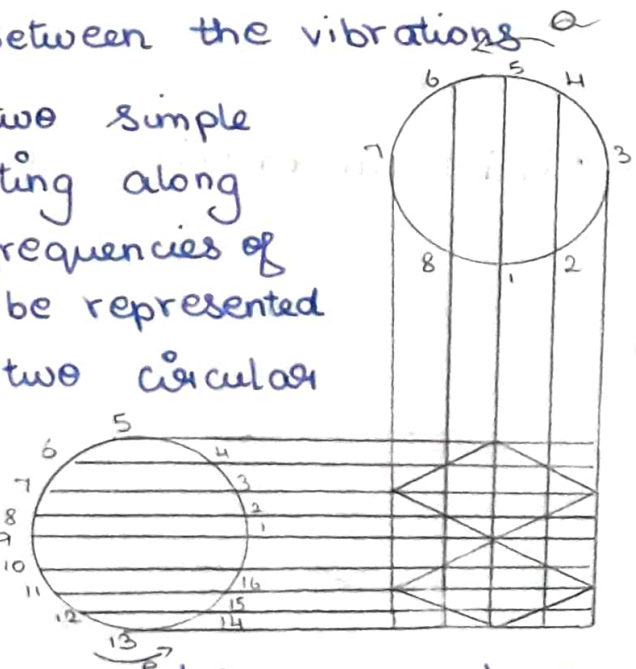 etween the vibrations
wo simple
ting along
requencies of
be represented
two circular
6 5 4
7 3
8 1 2
5
6 4
7 3
8 2
9 1
10
11 16
12 15
13 14